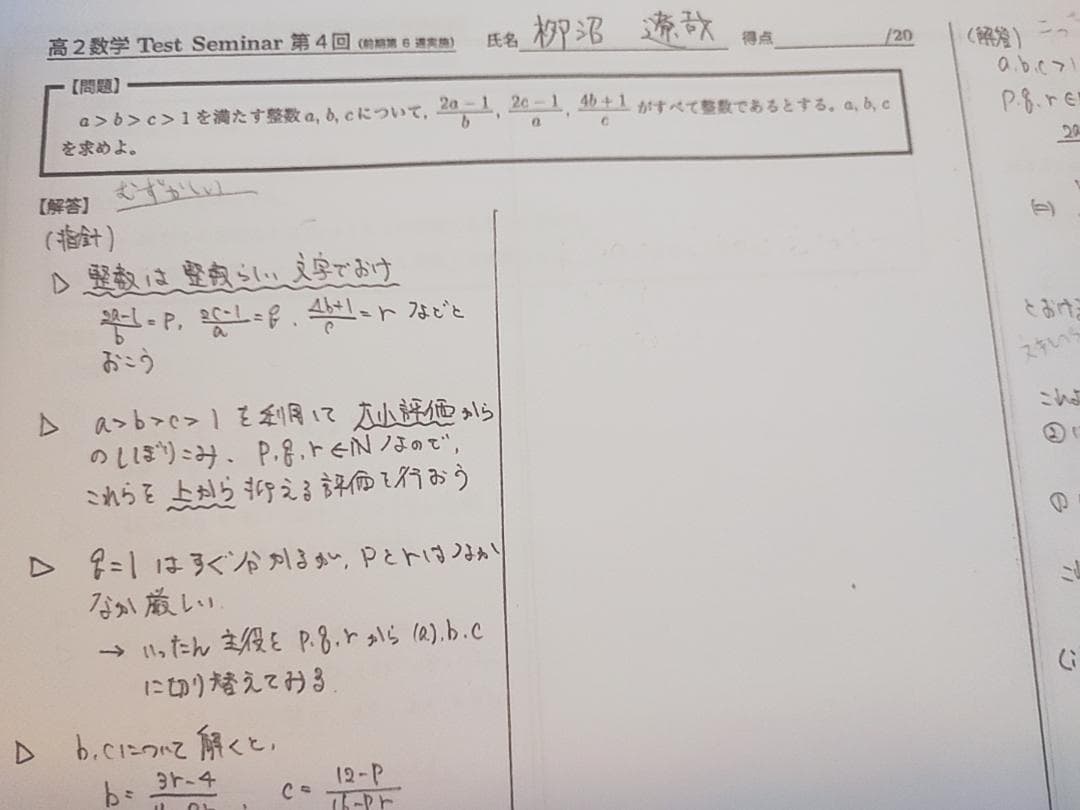 高2数学 Test Seminar 第4回 (前期第6週実施) 氏名 柳沼 遼哉 得点 /20
【問題】
a > b > c > 1 を満たす整数 a, b, c について, (2a − 1)/b, (2c − 1)/a, (4b + 1)/c がすべて整数であるとする。a, b, c
を求めよ。
【解答】 むずかしい
(指針)
▷ 整数は整数らしい文字でおけ
(2a−1)/b = p, (2c−1)/a = q, (4b+1)/c = r などと
おこう
▷ a>b>c>1 を利用して 大小評価から
のしぼりこみ、 p,q,r∈ℕ なので、
これらを上から抑える評価を行おう
▷ q=1 はすぐ分かるが, pとrはなか
なか厳しい
→ いったん主役を p,q,r から (a),b,c
に切り替えてみる
▷ b,cについて解くと,
b= 3r−4 , c= (12−p)/(16−pr)
(解答)
a,b,c>1
p,q,r∈
とおける
②
①
(i